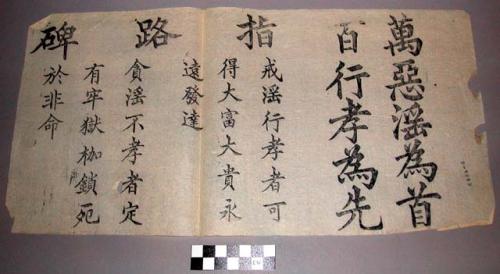 萬惡淫為首
百行孝為先
指路碑
戒淫行孝者可
得大富大貴永
遠發達
貪淫不孝者定
有牢獄枷鎖死
於非命